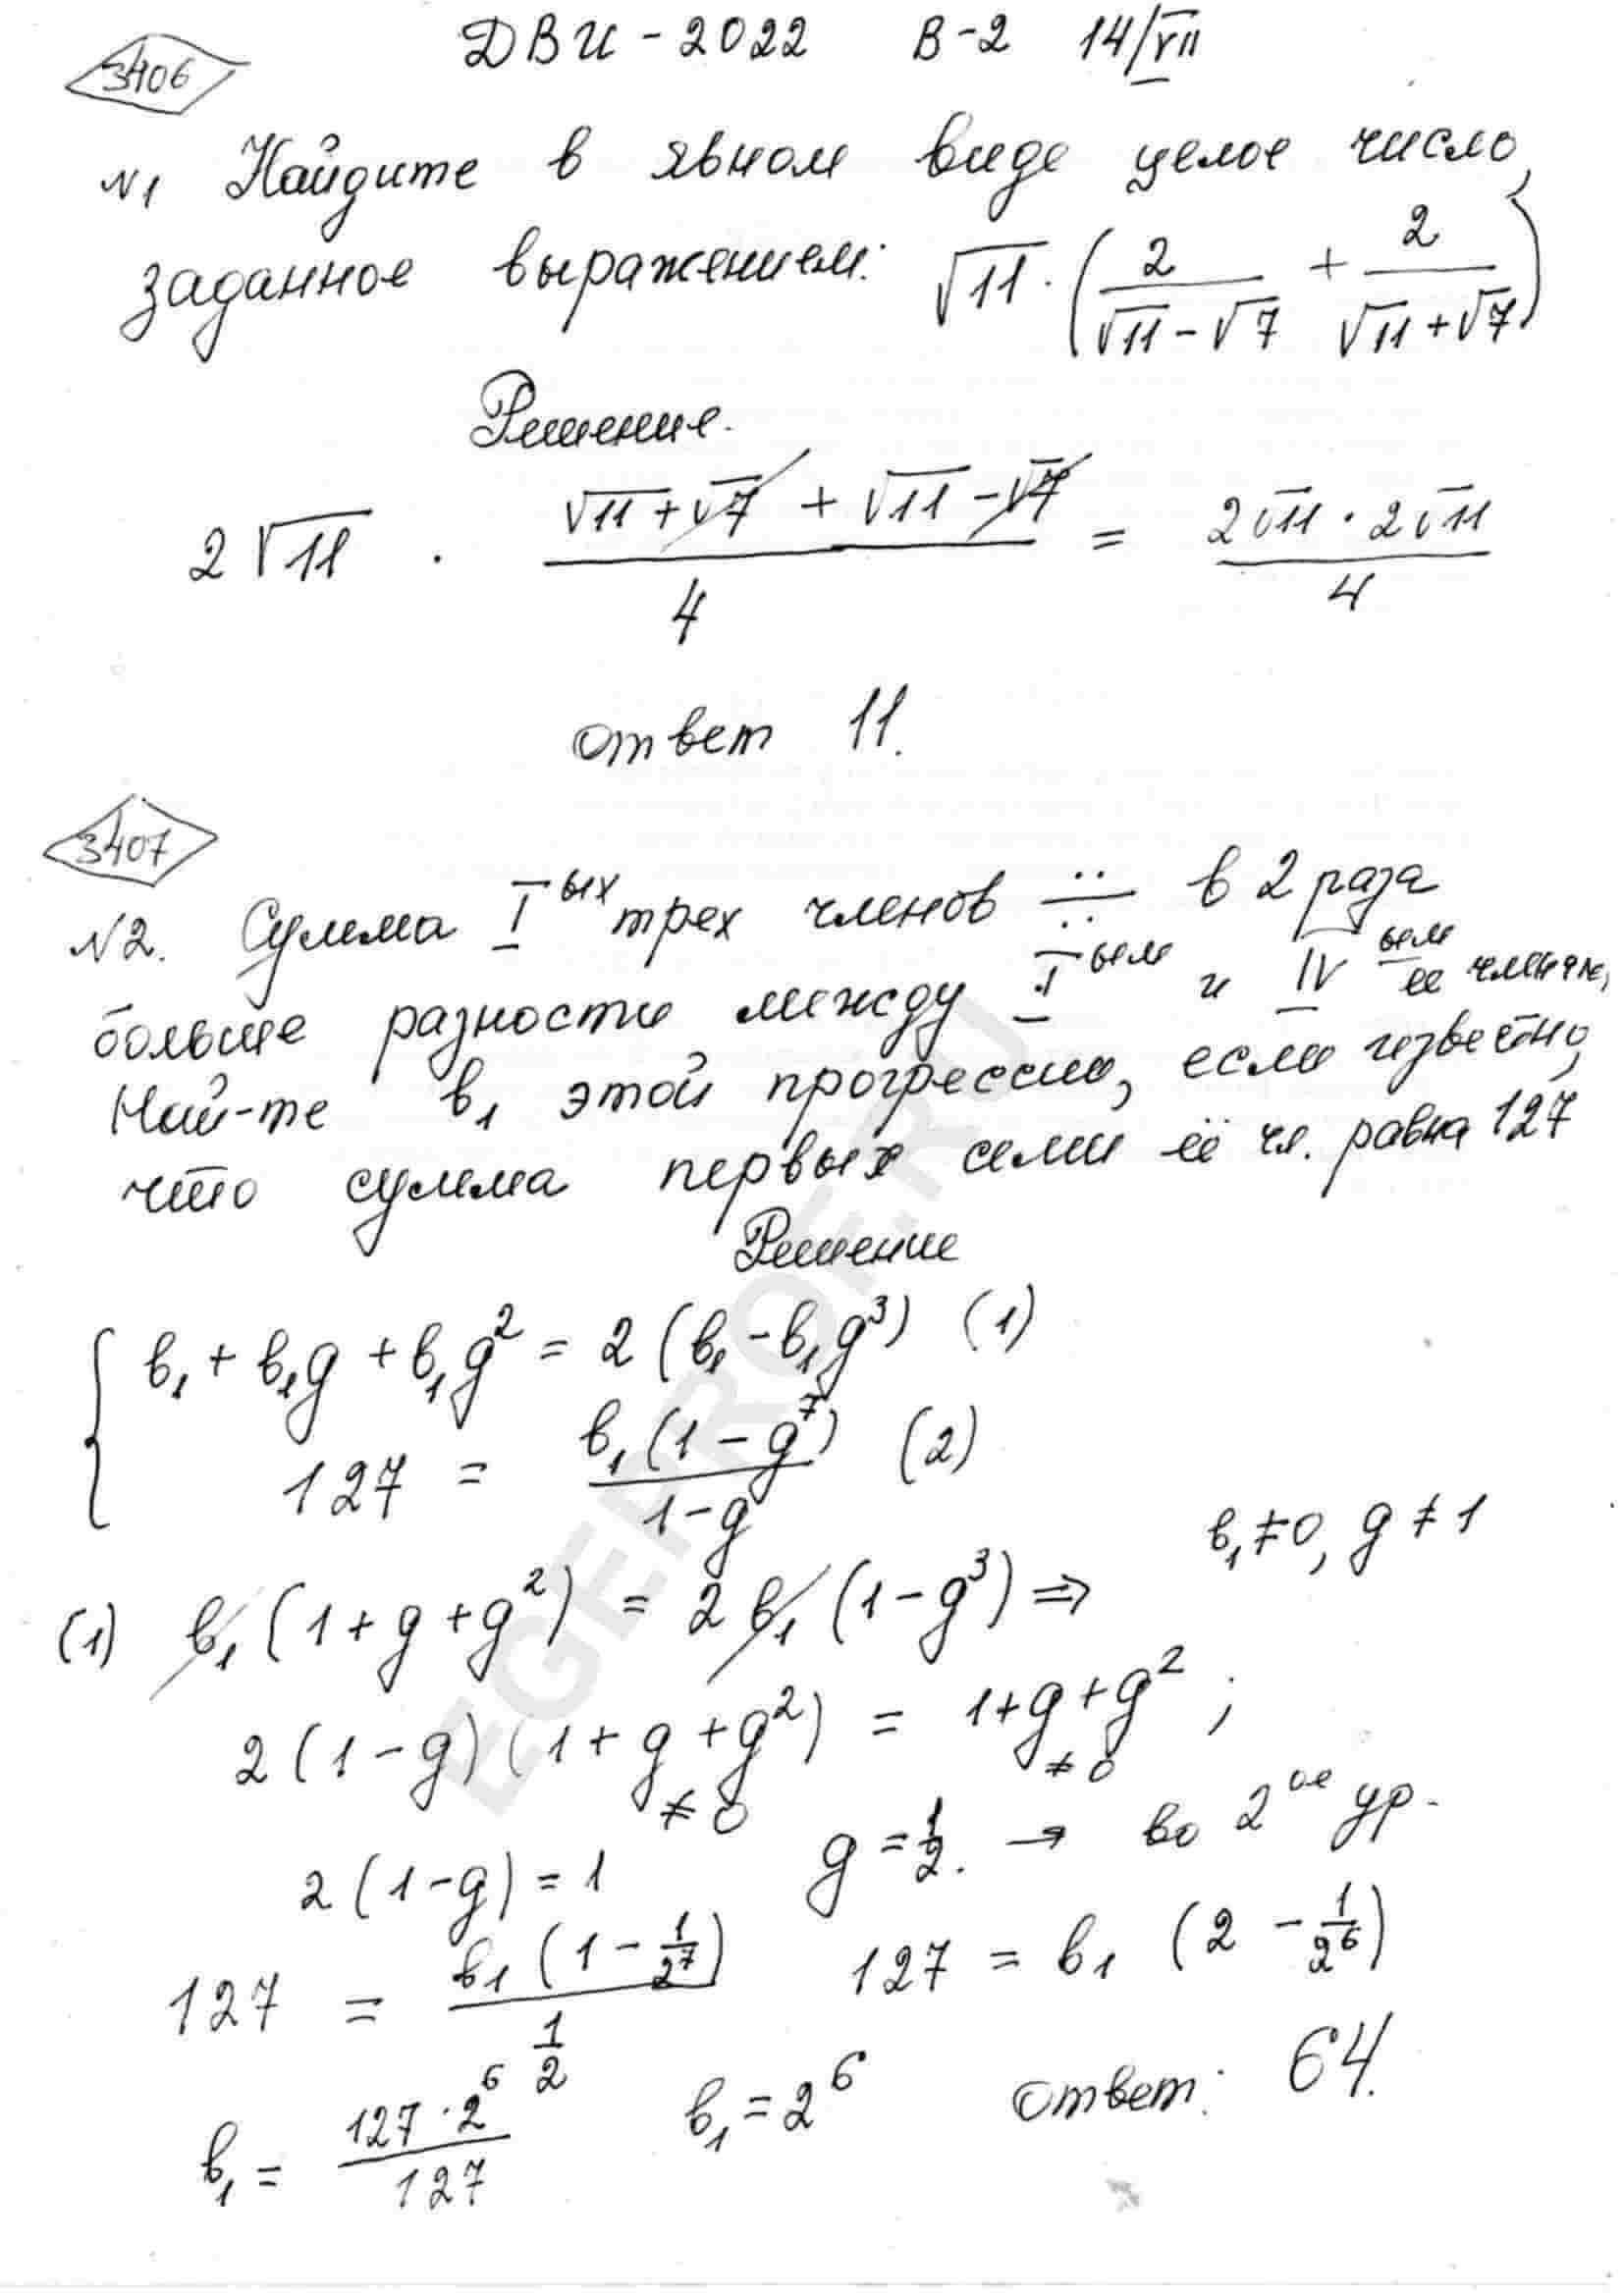 ДВИ - 2022 В-2 14/VII
3406
№1 Найдите в явном виде целое число,
заданное выражением: √11 · (2/(√11 - √7) + 2/(√11 + √7))
Решение.
2√11 · (√11 + √7 + √11 - √7)/4 = (2√11 · 2√11)/4
ответ 11.
3407
№2. Сумма I ых трех членов ÷ в 2 раза
больше разности между I ым и IV ым ее членам,
Най-те b₁ этой прогрессии, если известно,
что сумма первых семи её чл. равна 127
Решение
{ b₁ + b₁g + b₁g² = 2(b₁ - b₁g³) (1)
127 = b₁(1 - g⁷)/(1 - g) (2)
b₁ ≠ 0, g ≠ 1
(1) b₁(1 + g + g²) = 2b₁(1 - g³) ⇒
2(1 - g)(1 + g + g²) = 1 + g + g² ;
≠ 0 ≠ 0
2(1 - g) = 1 g = 1/2. → во 2ое ур.
127 = b₁(1 - 1/2⁷)/(1/2) 127 = b₁(2 - 1/2⁶)
b₁ = (127 · 2⁶)/127 b₁ = 2⁶ ответ: 64.
EGEPROF.RU